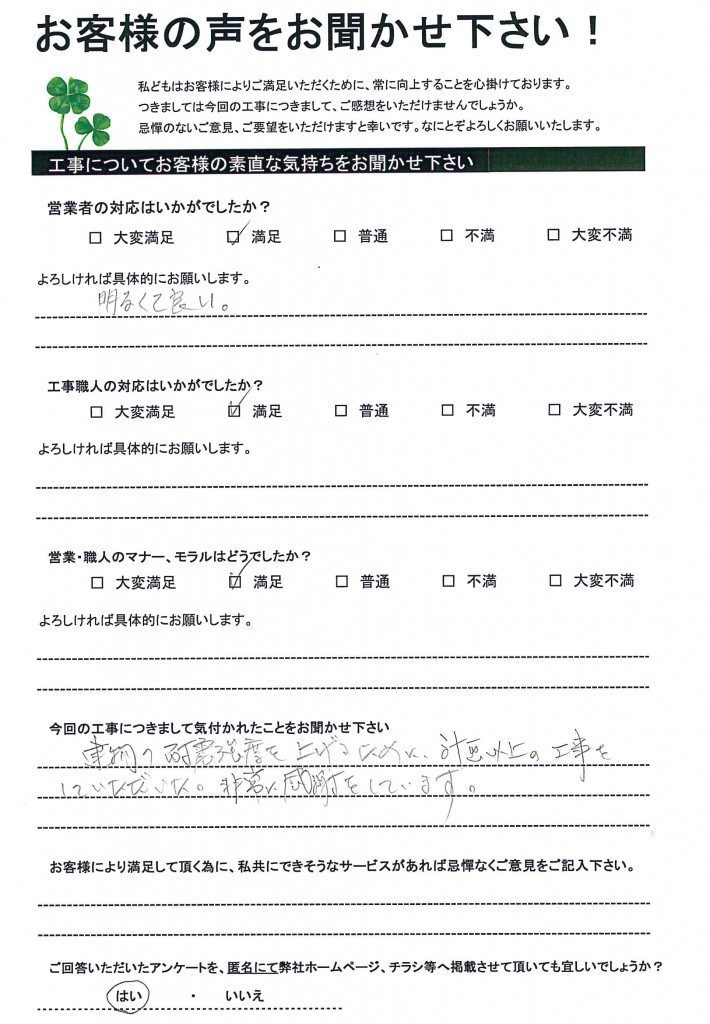 お客様の声をお聞かせ下さい!
私どもはお客様によりご満足いただくために、常に向上することを心掛けております。
つきましては今回の工事につきまして、ご感想をいただけませんでしょうか。
忌憚のないご意見、ご要望をいただけますと幸いです。なにとぞよろしくお願いいたします。
工事についてお客様の素直な気持ちをお聞かせ下さい
営業者の対応はいかがでしたか?
□ 大変満足 ☑ 満足 □ 普通 □ 不満 □ 大変不満
よろしければ具体的にお願いします。
明るくて良い。
工事職人の対応はいかがでしたか?
□ 大変満足 ☑ 満足 □ 普通 □ 不満 □ 大変不満
よろしければ具体的にお願いします。
営業・職人のマナー、モラルはどうでしたか?
□ 大変満足 ☑ 満足 □ 普通 □ 不満 □ 大変不満
よろしければ具体的にお願いします。
今回の工事につきまして気付かれたことをお聞かせ下さい
建物の耐震強度を上げるために、計画以上の工事を
していただいた。非常に感謝をしています。
お客様により満足して頂く為に、私共にできそうなサービスがあれば忌憚なくご意見をご記入下さい。
ご回答いただいたアンケートを、匿名にて弊社ホームページ、チラシ等へ掲載させて頂いても宜しいでしょうか?
はい ・ いいえ